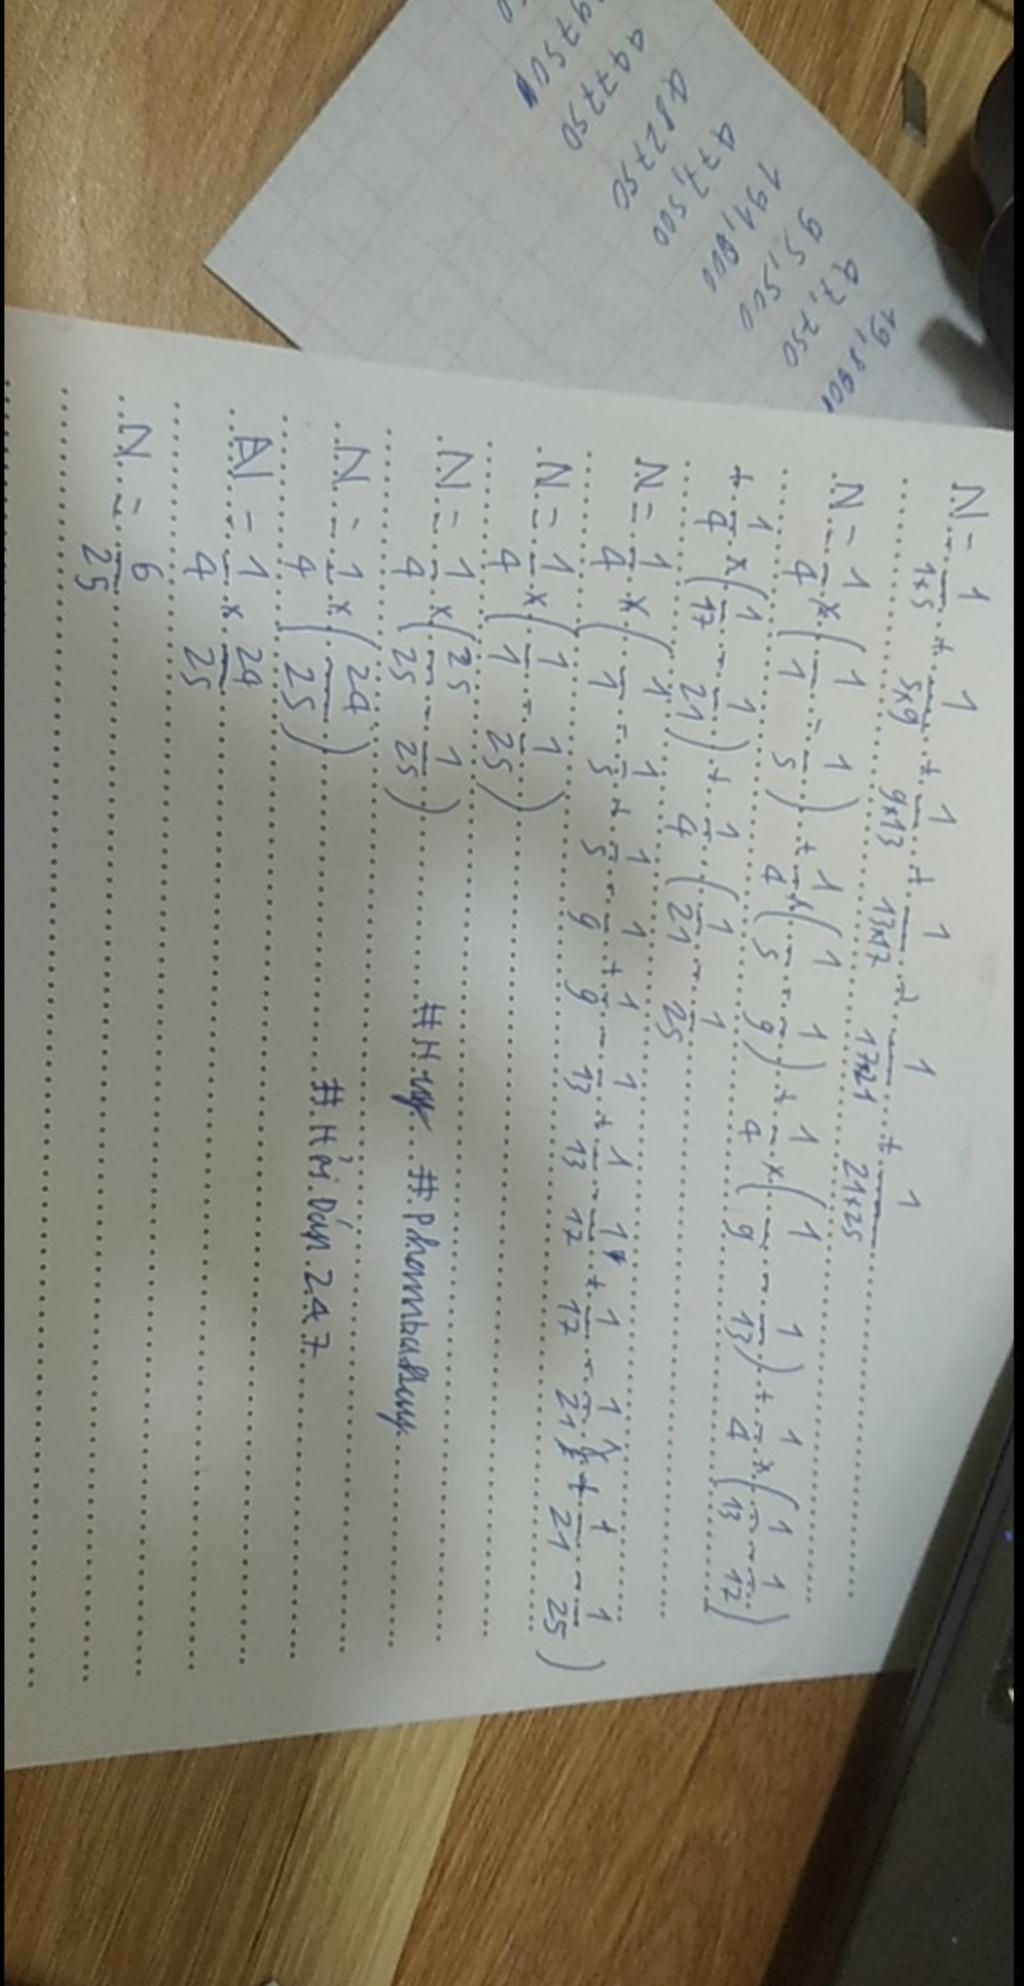 N = 1/1x5 + 1/5x9 + 1/9x13 + 1/13x17 + 1/17x21 + 1/21x25
N = 1/4 x (1/1 - 1/5) + 1/4 x (1/5 - 1/9) + 1/4 x (1/9 - 1/13) + 1/4 x (1/13 - 1/17)
+ 1/4 x (1/17 - 1/21) + 1/4 (1/21 - 1/25
N = 1/4 x (1/1 - 1/5 + 1/5 - 1/9 + 1/9 - 1/13 + 1/13 - 1/17 + 1/17 - 1/21 + 1/21 - 1/25)
N = 1/4 x (1/1 - 1/25)
N = 1/4 x (25/25 - 1/25)
#Huy #Phambahuy
N = 1/4 x (24/25)
#Hỏi Đáp 247
N = 1/4 x 24/25
N = 6/25
19,800
97,750
95,500
191,000
477,500
482750
497750